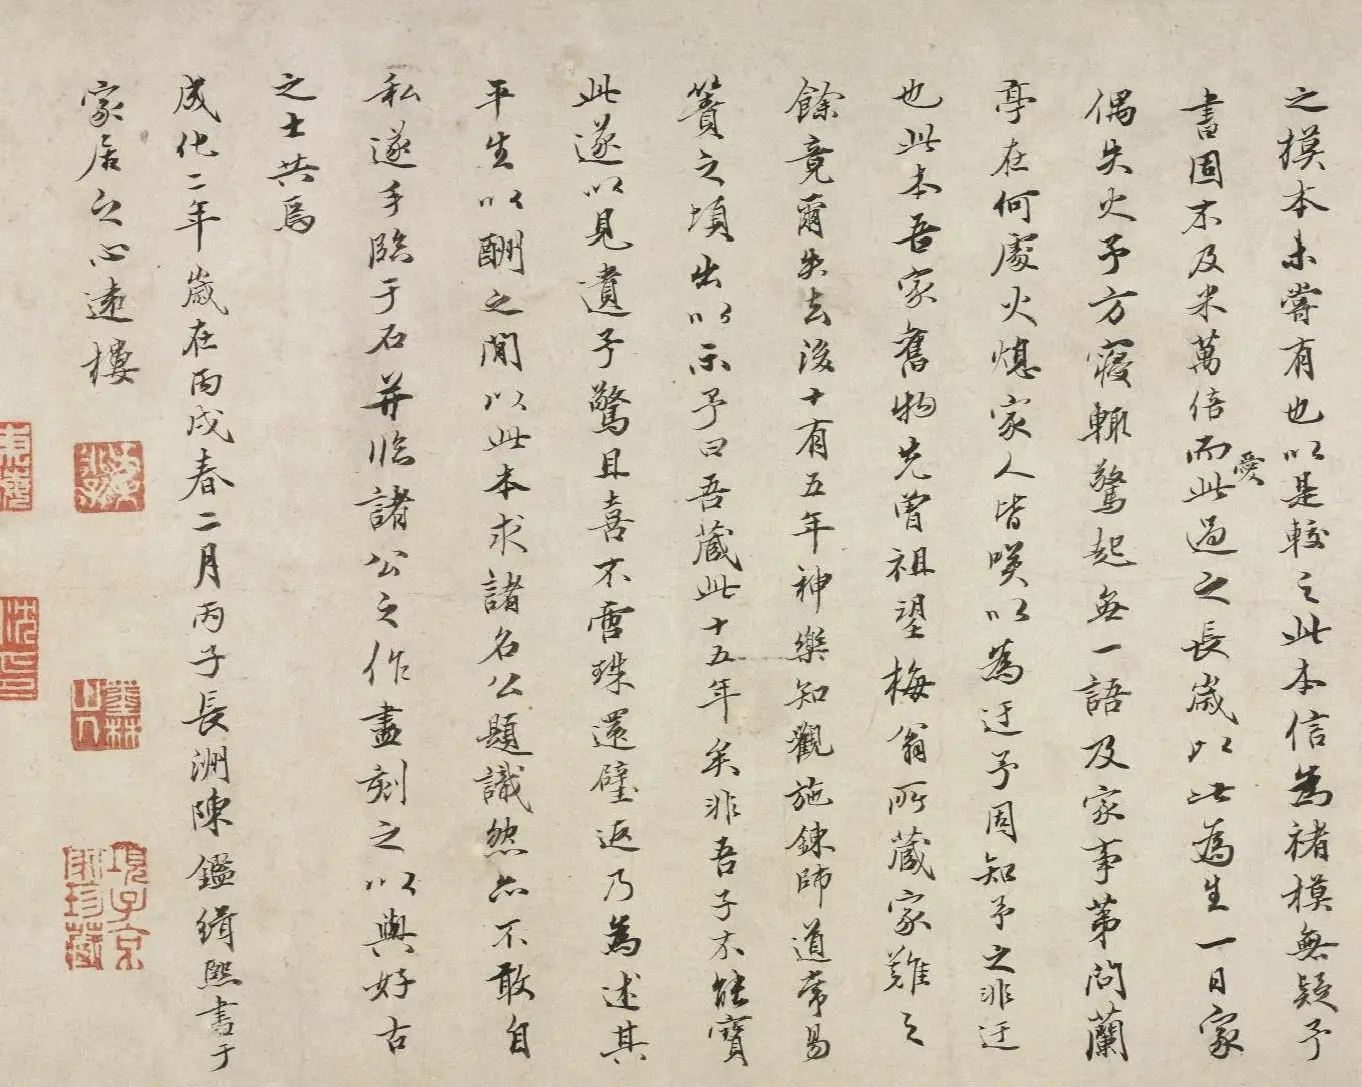 之摸本未嘗有也以是較之此本信為褚模無疑予
書固不及米萬倍而此愛過之長歲以此為生一日家
偶失火予方寢輒驚起無一語及家事苐問蘭
亭在何處火熄家人皆咲以為迂予固知予之非迂
也此本吾家舊物先曾祖望梅翁所藏家難之
餘竟爾失去後十有五年神樂知觀施鍊師道常易
簀之頃出以示予曰吾藏此十五年矣非吾子不能寶
此遂以見遺予驚且喜不啻珠還璧返乃為述其
平生以酬之間以此本求諸名公題識然亦不敢自
私遂手臨于石并臨諸公之作盡刻之以與好古
之士共焉
成化二年歲在丙戌春二月丙子長洲陳鑑緝熙書于
家居之心遠樓
項子京家珍藏